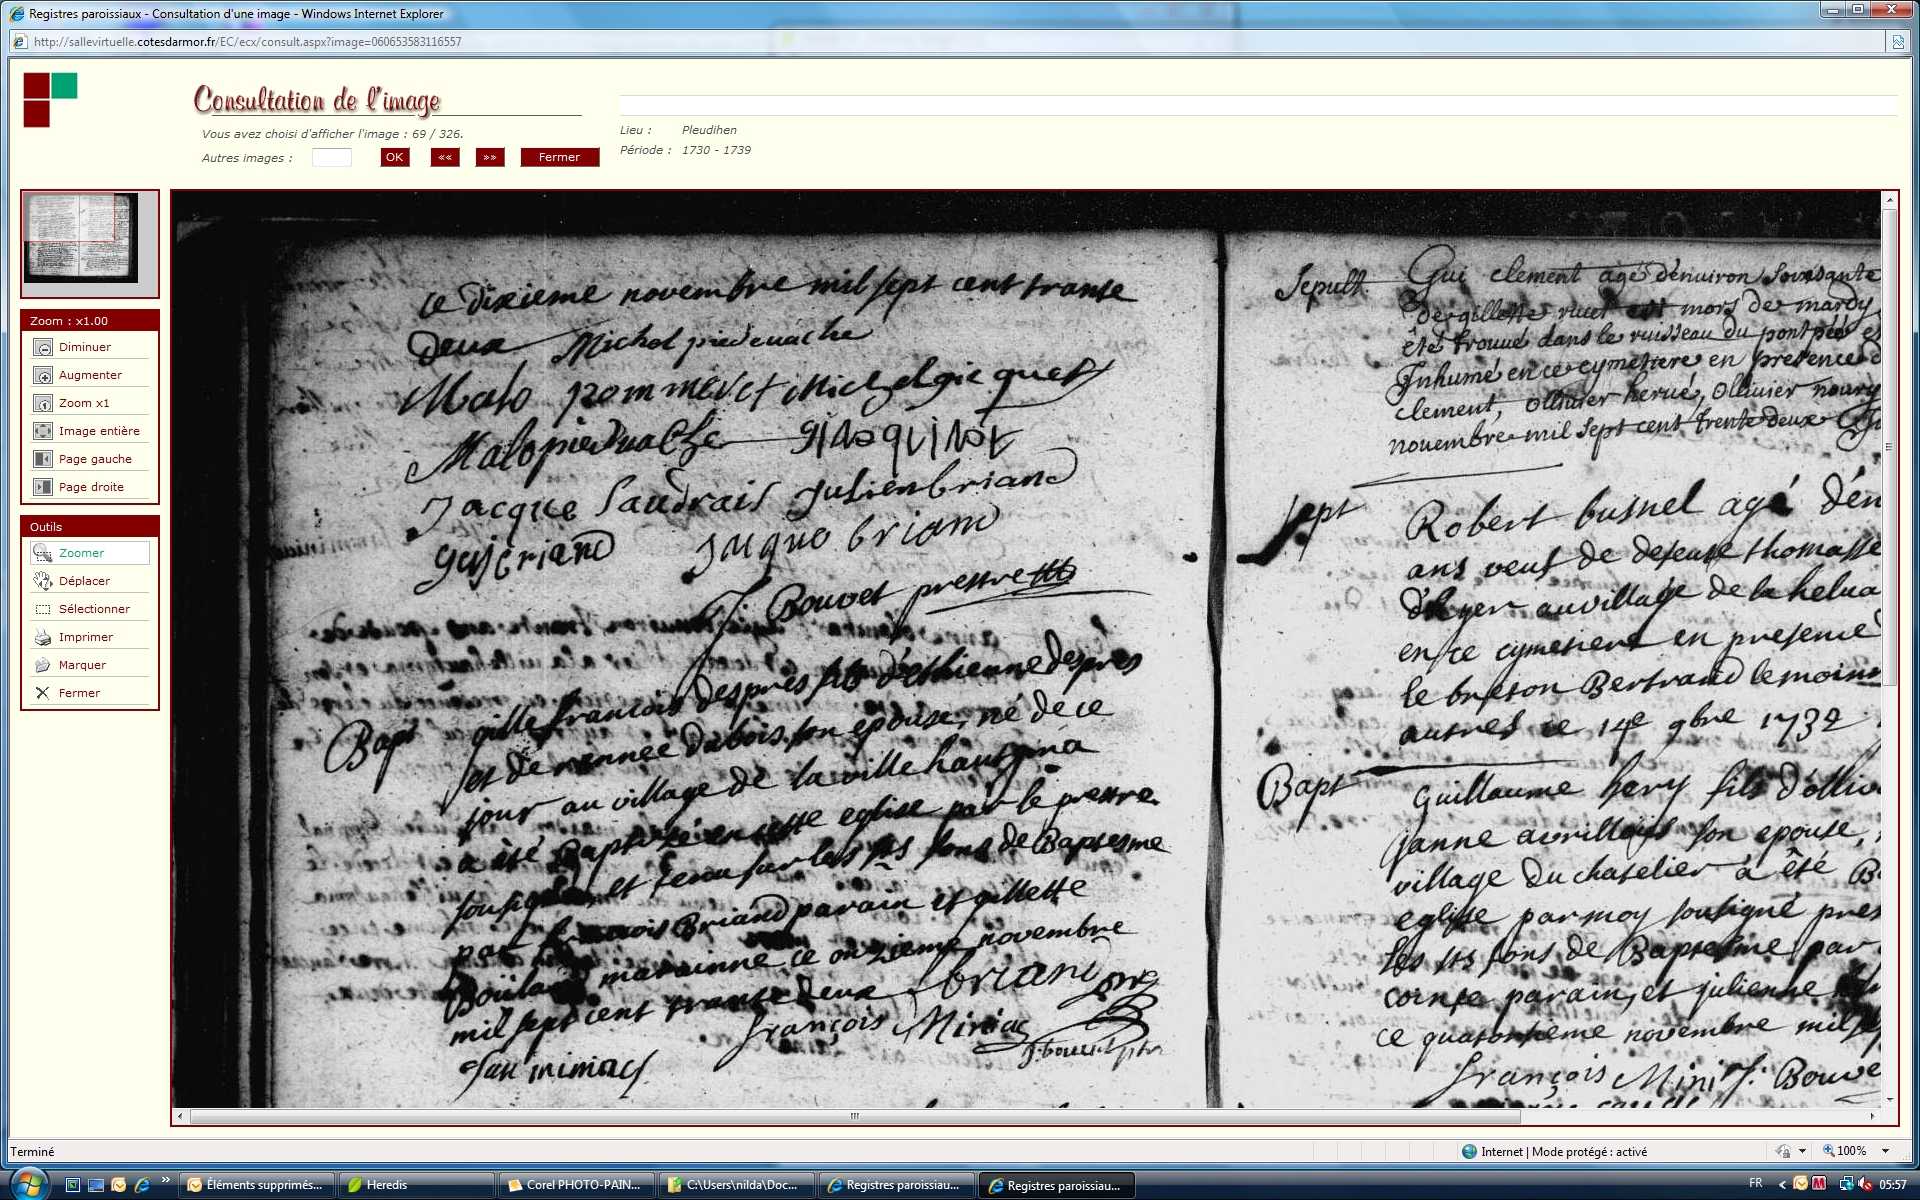 Registres paroissiaux - Consultation d'une image - Windows Internet Explorer
http://sallevirtuelle.cotesdarmor.fr/EC/ecx/consult.aspx?image=060653583116557
Consultation de l'image
Vous avez choisi d'afficher l'image : 69 / 326.
Autres images :
OK
««
»»
Fermer
Lieu : Pleudihen
Période : 1730 - 1739
Zoom : x1.00
Diminuer
Augmenter
Zoom x1
Image entière
Page gauche
Page droite
Outils
Zoomer
Déplacer
Sélectionner
Imprimer
Marquer
Fermer
ce dixieme novembre mil sept cent trante
deux Michel piedeuache
Malo pommeret Michel gicquel
Malo pieduache
Jacque Saudrais Julien briand
guy briand Jaque briand
J. Bouvet prestre
Bapt
gille francois despres fils d'esthienne despres
et de rennee dubois son epouse, né de ce
jour au village de la ville hautgina
a été Baptizé en cette eglise par le prestre
sousigné, et tenu sur les sts fons de Baptesme
par francois Briand parain et gillette
marainne ce onzieme novembre
mil sept cent trante deux briand
françois Miniac
Jan miniac
Sepult
Gui clement agé d'enuiron soixsante
mors de mardy
été trouué dans le ruisseau du pont
Inhumé en ce cymettere en presence d
clement, ollivier herué, ollivier noury
novembre mil sept cent trente deux
Sept
Robert busnel agé d'en
ans veuf de defeute thomasse
au village de la helua
en ce cymetiere en presence
le breton Bertrand le moin
autres ce 14e 9bre 1732
Bapt
Guillaume hery fils d'olliv
janne avrillons son epouse,
village du chatelier à été B
eglise par moy sousigné pres
les sts fons de Baptesme par
cointe parain, et julienne
ce quatorzieme novembre mil se
françois Mini J. Bouve
Terminé
Internet | Mode protégé : activé
100%
Éléments supprimés...
Heredis
Corel PHOTO-PAIN...
C:\Users\nilda\Doc...
Registres paroissiau...
Registres paroissiau...
FR
05:57